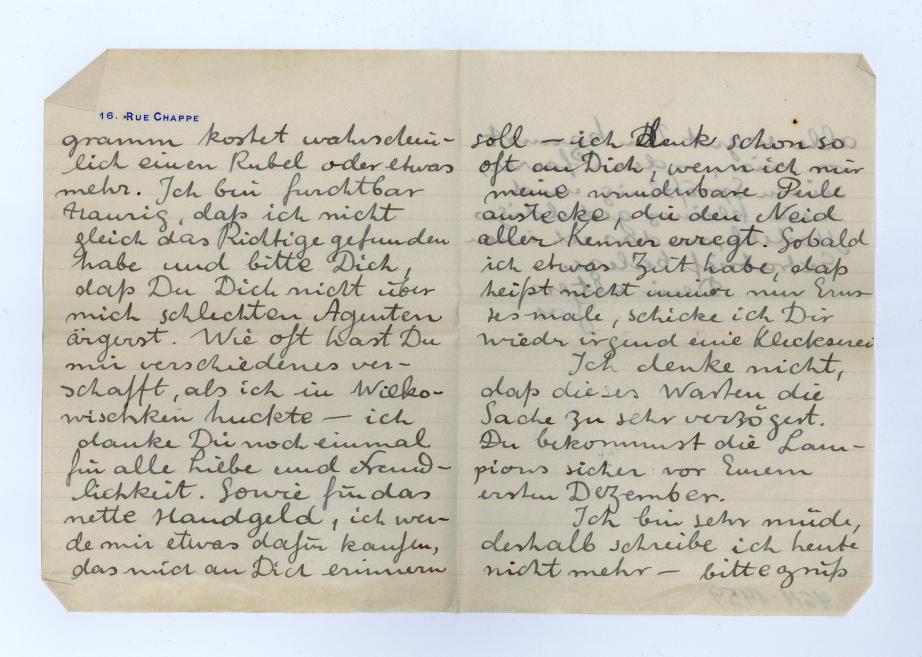 16. RUE CHAPPE
gramm kostet wahrschein-
lich einen Rubel oder etwas
mehr. Ich bin furchtbar
traurig, daß ich nicht
gleich das Richtige gefunden
habe und bitte Dich,
daß Du Dich nicht über
mich schlechten Agenten
ärgerst. Wie oft hast Du
mir verschiedenes ver-
schafft, als ich in Wilko-
wischken huckte – ich
danke Dir noch einmal
für alle Liebe und Freund-
lichkeit. Sowie für das
nette Handgeld, ich wer-
de mir etwas dafür kaufen,
das mich an Dich erinnern
soll – ich denk schon so
oft an Dich, wenn ich mir
meine wunderbare Perle
anstecke, die den Neid
aller Kenner erregt. Sobald
ich etwas Zeit habe, daß
heißt nicht immer nur
male, schicke ich Dir
wieder irgend eine Kleckserei
Ich denke nicht,
daß dieses Warten die
Sache zu sehr verzögert.
Du bekommst die Lam-
pions sicher vor Eurem
ersten Dezember.
Ich bin sehr müde,
deshalb schreibe ich heute
nicht mehr – bitte grüß